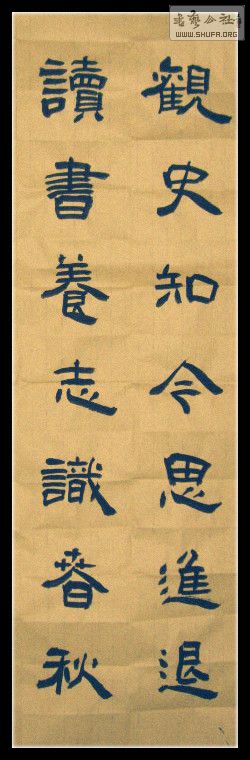 觀史知今思進退
讀書養志識春秋
書藝公社
WWW.SHUFA.ORG